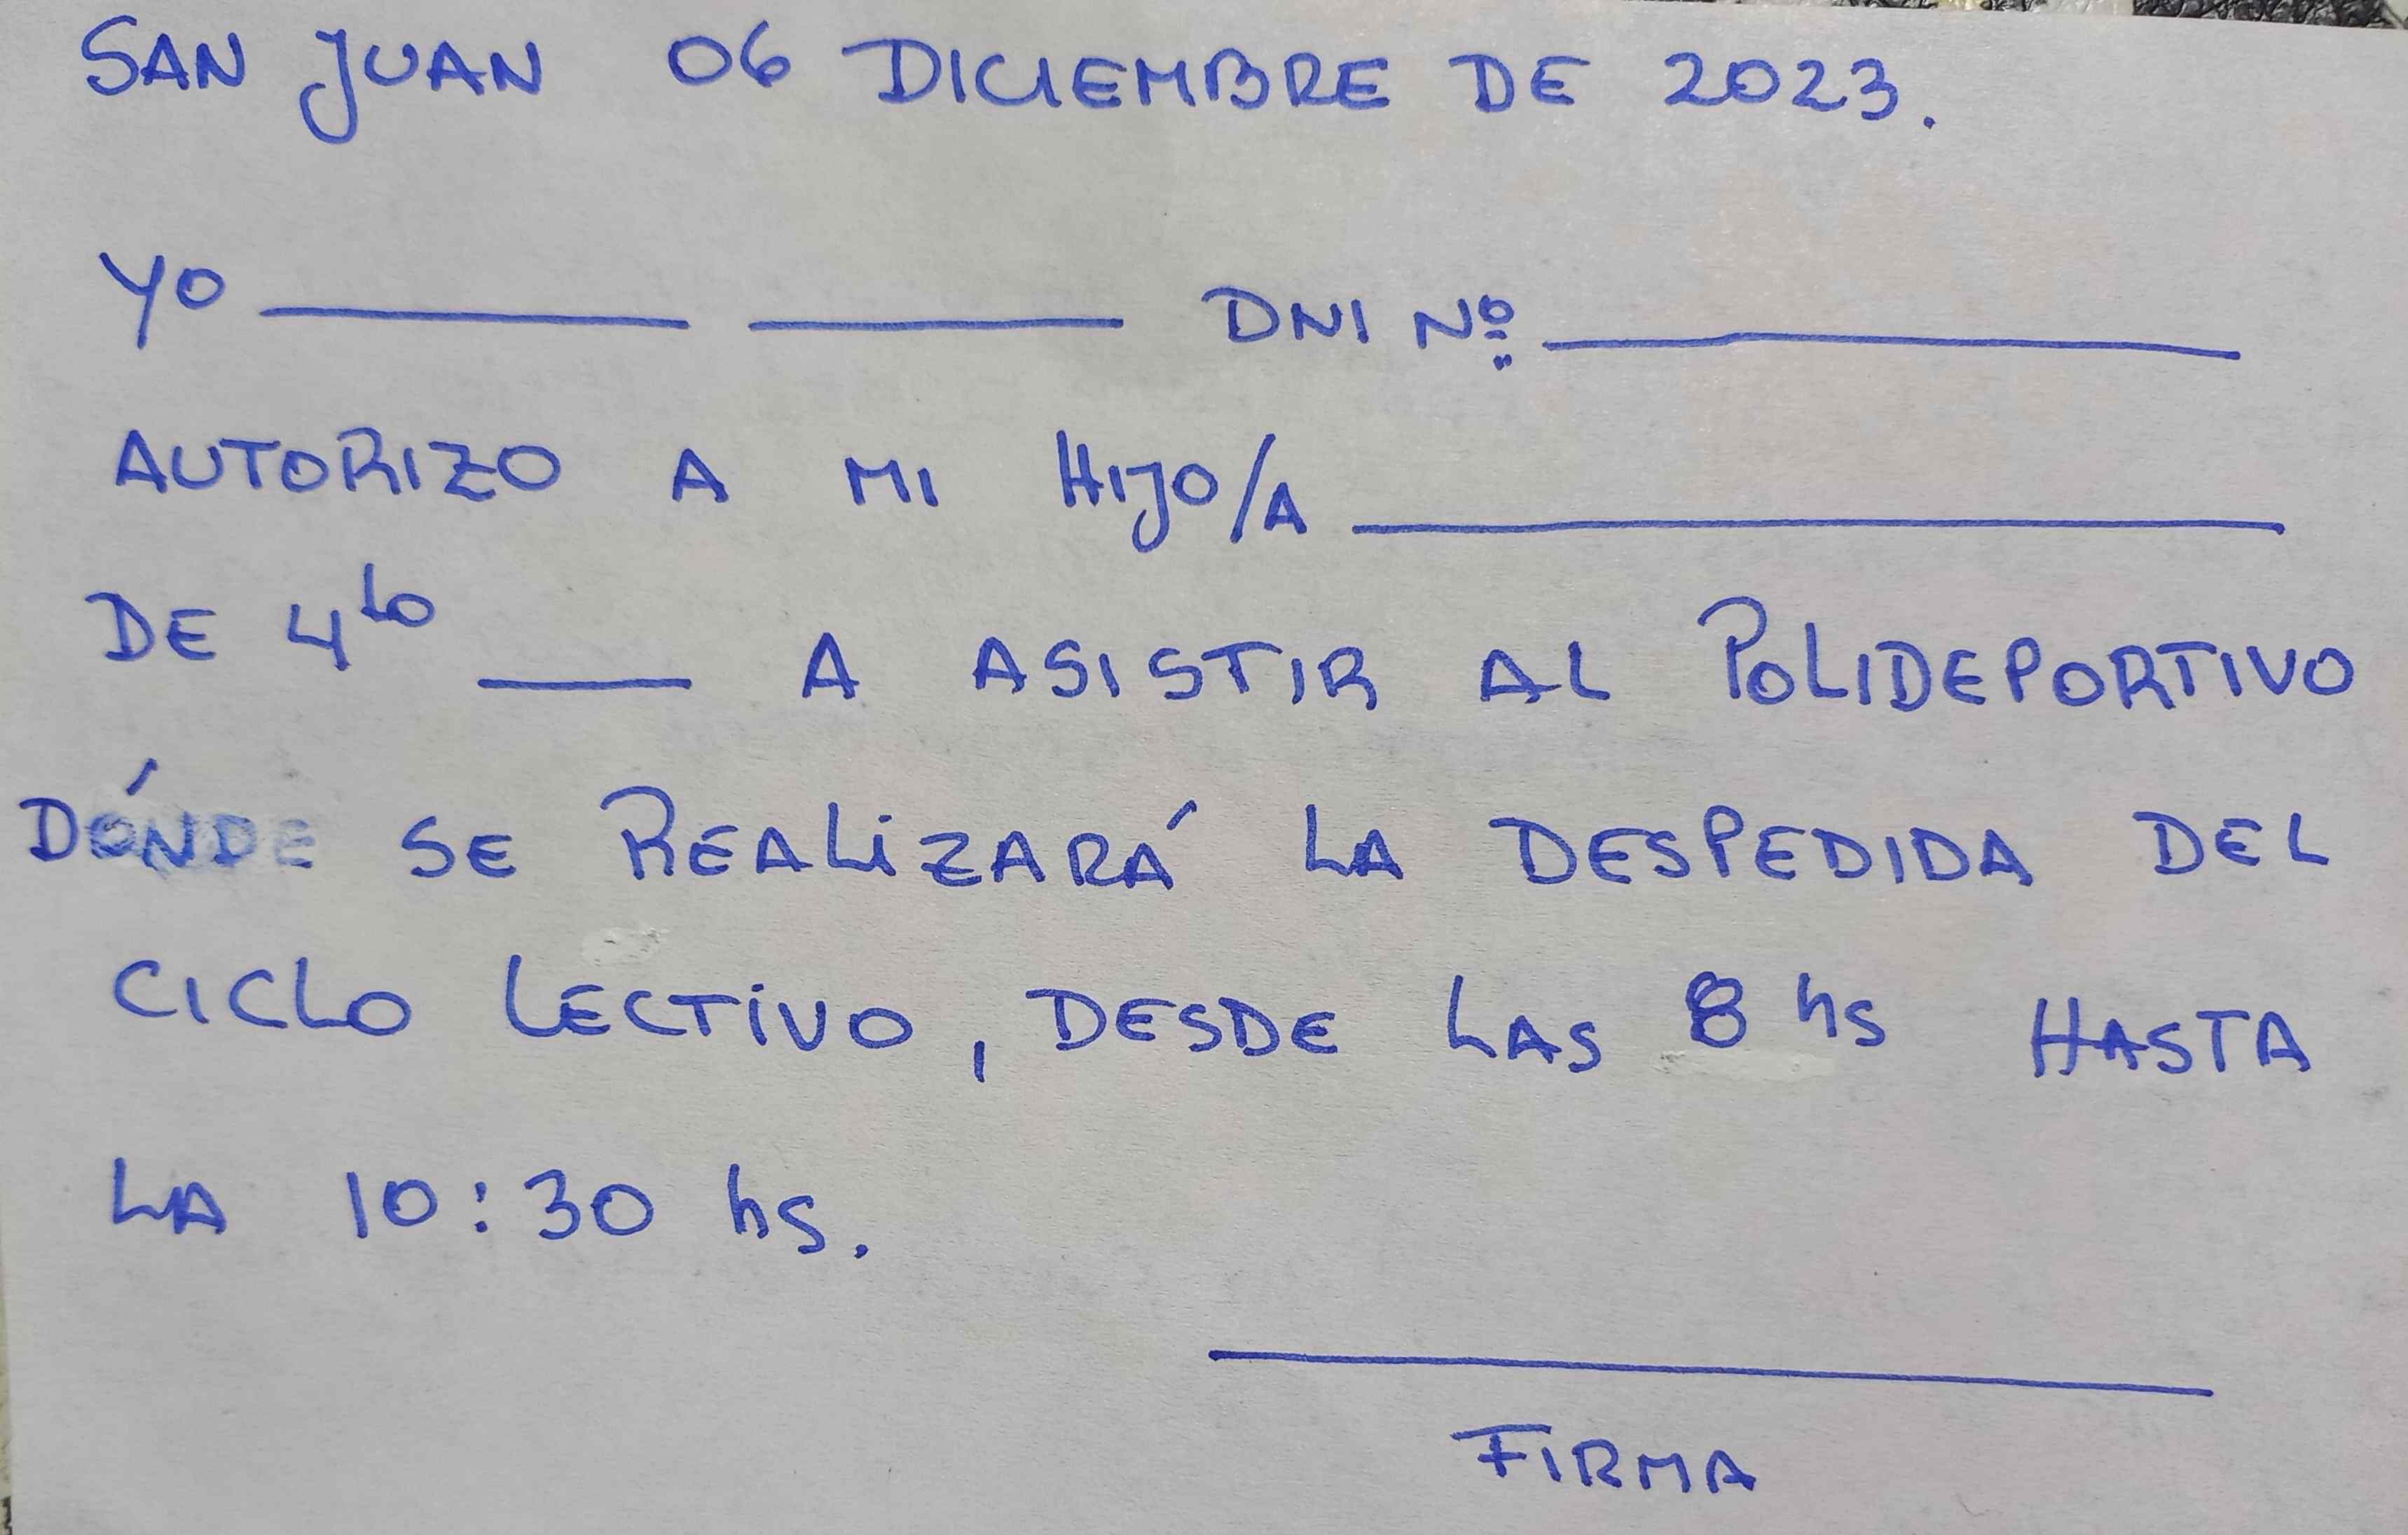 SAN JUAN 06 DICIEMBRE DE 2023.
YO ______ ______ DNI Nº: ______
AUTORIZO A MI HIJO/A ______
DE 4to ___ A ASISTIR AL POLIDEPORTIVO
DÓNDE SE REALIZARÁ LA DESPEDIDA DEL
CICLO LECTIVO, DESDE LAS 8 hs HASTA
LA 10:30 hs.
FIRMA